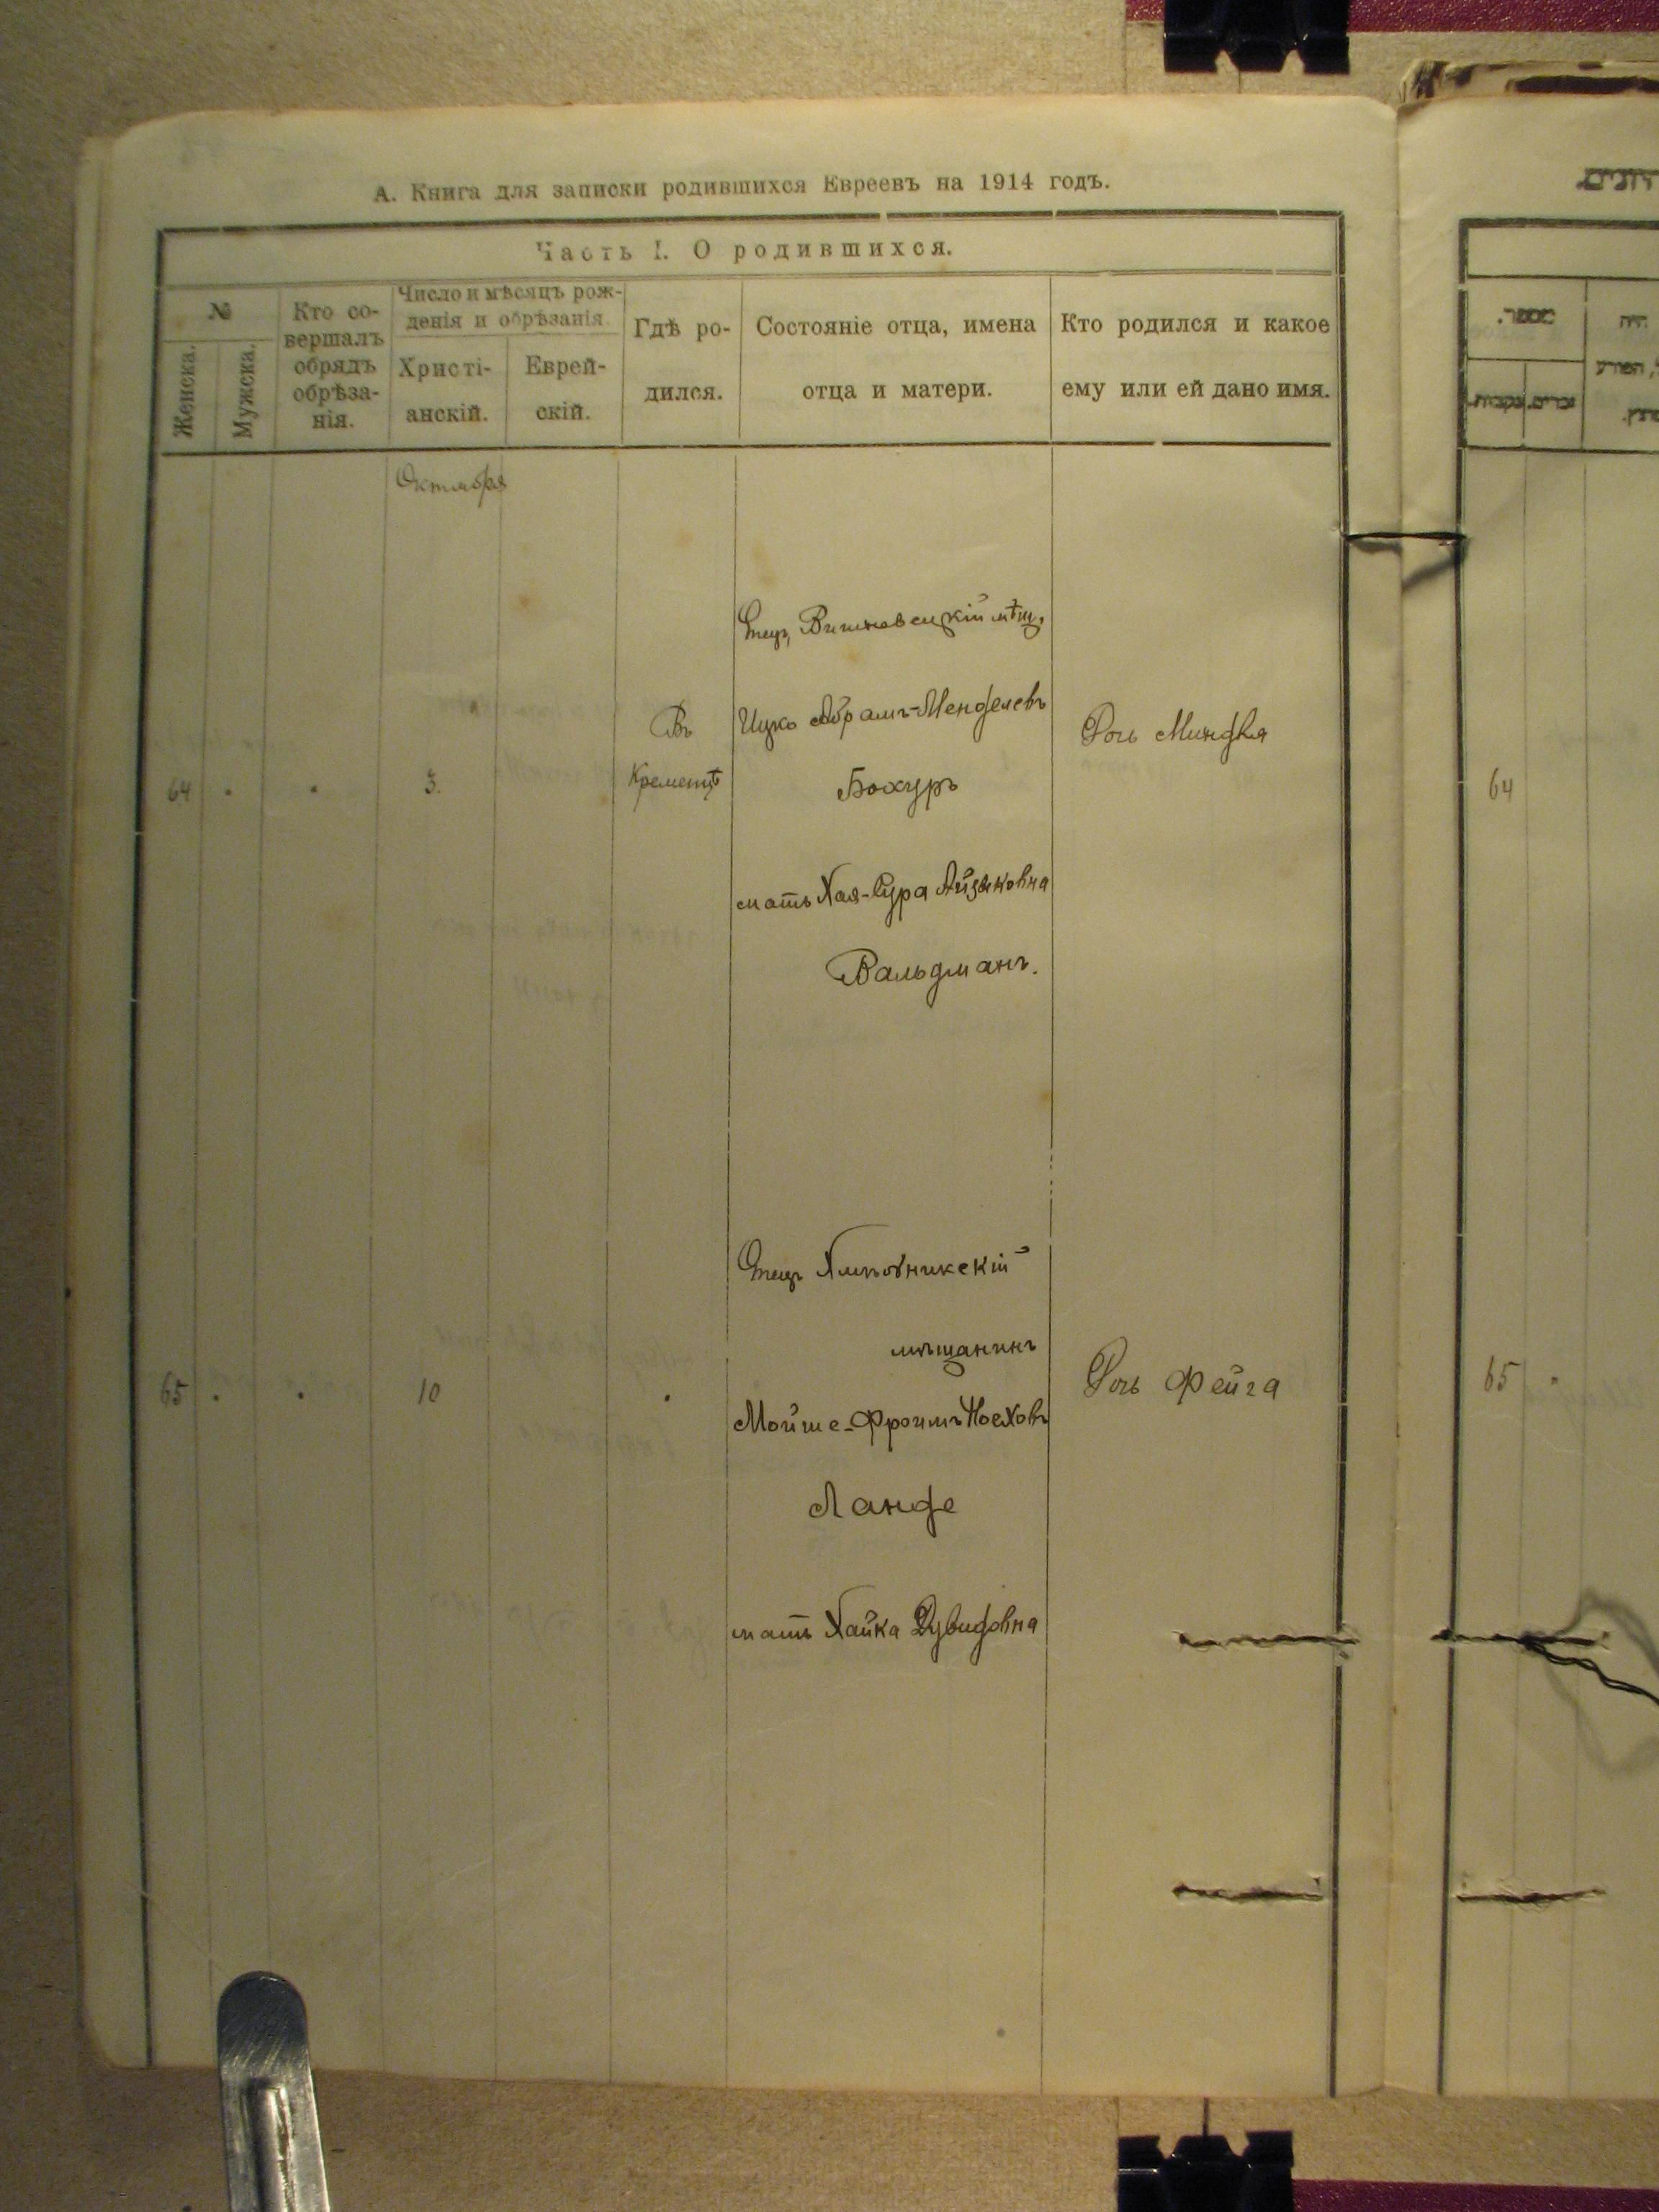 А. Книга для записки родившихся Евреевъ на 1914 годъ.
Часть I. О родившихся.
№
Женска.
Мужска.
Кто со-
вершалъ
обрядъ
обрѣза-
нія.
Число и мѣсяцъ рож-
денія и обрѣзанія
Христі-
анскій.
Еврей-
скій.
Гдѣ ро-
дился.
Состояніе отца, имена
отца и матери.
Кто родился и какое
ему или ей дано имя.
Октября
64
3.
Въ
Кременцѣ
Отецъ Вишневецкій мѣщ.
Ицко Абрамъ-Менделевъ
Бохуръ
мать Хая-Сура Айзиковна
Вальдманъ.
Дочь Миндля
65
10
Отецъ
мѣщанинъ
Мойше-Фроимъ Ноеховъ
Ланде
мать Хайка Дувидовна
Дочь Фейга
מספר.
זכרים.
נקבות.
64
65